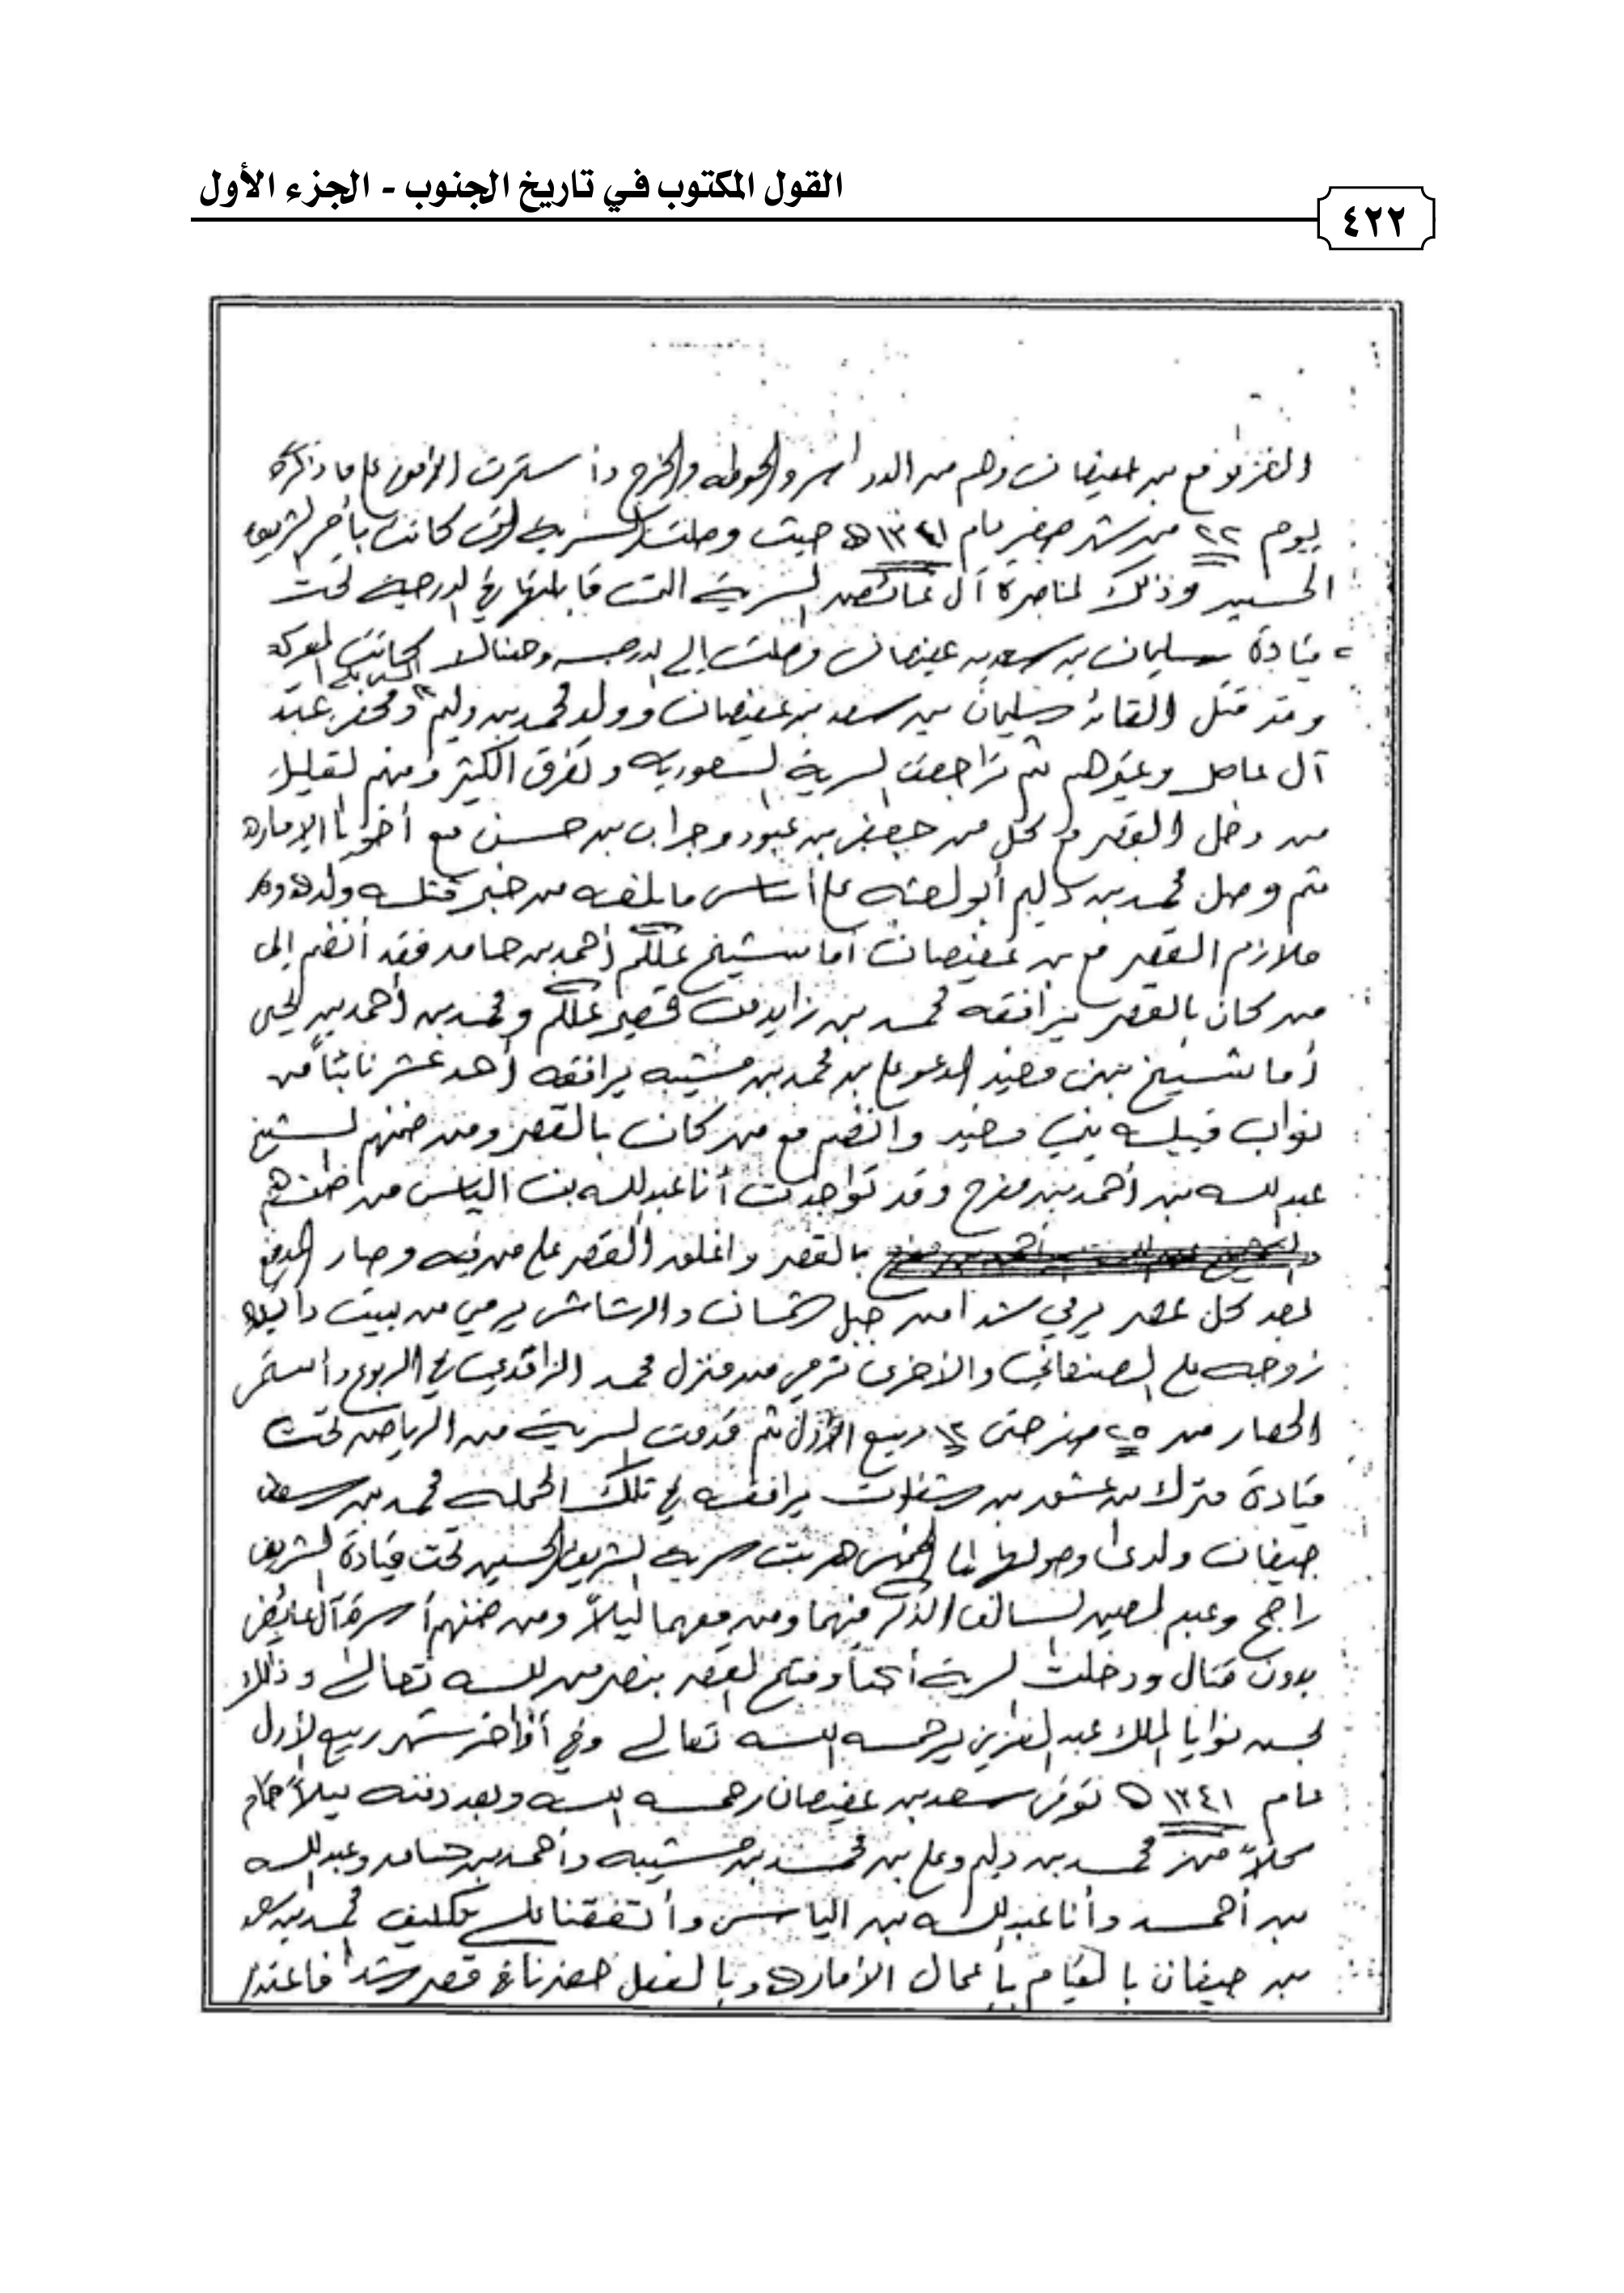 القول المكتوب في تاريخ الجنوب - الجزء الأول
٤٢٢
الغزو مع بن عفيصان وهم من الدواسر والحوطه والخرج وأستمرت الأمور على ما ذكره
يوم ٢٢ من شهر صفر عام ١٣٤١ه حيث وصلت السريه التي كانت بأمر الشريف
الحسين وذلك لمناصرة آل عائض السرية التي قابلتها في الدرجه تحت
قيادة سليمان بن سعد بن عفيصان وصلت إلى الدرجه وهنالك كانت المعركة
وقد قتل القائد سليمان بن سعد بن عفيصان وولد محمد بن دليم ومحمد عبد
آل عاصل وغيرهم ثم تراجعت السرية السعوديه وتفرق الكثير ومنهم القليل
من دخل القصر مع كل من جعفر بن عبود وجراب بن حسن مع أخويا الإماره
ثم وصل محمد بن دليم أبو لعثه على أساس ما بلغه من خبر قتلة ولده وهو
ملازم القصر مع بن عفيصان أما شيخ علكم أحمد بن حامد فقد أنضم إلى
من كان بالقصر يرافقه محمد بن زايد من قصير علكم ومحمد بن أحمد بن يحيى
أما شيخ بني مغيد المدعو علي بن محمد بن مشيبه يرافقه أحد عشر نائباً من
نواب قبيلة بني مغيد وانضم مع من كان بالقصر ومن ضمنهم الشيخ
عبدالله بن أحمد بن مفرح وقد تواجدت أنا عبدالله بن الياس من ضمنهم
بالقصر واغلق القصر على من فيه وصار المدفع
بعد كل عصر يرمي شدا من جبل شمسان والرشاش يرمي من بيت دايله
زوجه علي الصنعاني والأخرى ترمي من منزل محمد الزاقدي في الربوع وأستمر
الحصار من ٢٥ صفر حتى ١٢ ربيع الأول ثم قدمت السرية من الرياض تحت
قيادة مترك بن عشق بن شفلوت يرافقه في تلك الحمله محمد بن سعد
ضيفان ولدى وصولها لنا هربت سرية الشريف الحسين تحت قيادة الشريف
راجح وعبد المعين السالف الذكر منهما ومن معهما ليلاً ومن ضمنهم أسرة آل عائض
بدون قتال ودخلت السرية أبها وفتح القصر بنصر من الله تعالى وذلك
لحسن نوايا الملك عبد العزيز يرحمه الله تعالى وفي أواخر شهر ربيع الأول
عام ١٣٤١ه توفى سعد بن عفيصان رحمه الله وبعد دفنه ليلاً قام
كلاً من محمد بن دليم وعلي بن محمد بن مشيبه وأحمد بن حامد وعبدالله
بن أحمد وأنا عبدالله بن الياس وأتفقنا على تكليف محمد بن سعد
بن ضيفان بالقيام بأعمال الأماره وبالفعل حضرنا في قصر شدا فاعتذر